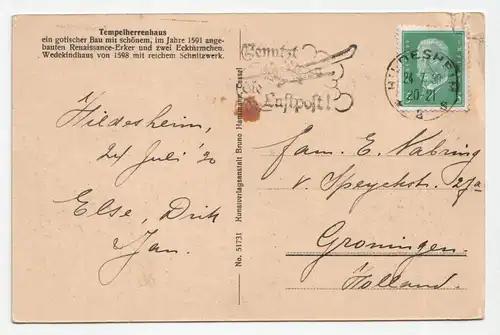 Tempelherrenhaus
ein gotischer Bau mit schönem, im Jahre 1591 ange-
bauten Renaissance-Erker und zwei Ecktürmchen.
Wedekindhaus von 1598 mit reichem Schnitzwerk.
Hildesheim,
24 Juli '30
Else, Dirk
Jan.
No. 51731 Kunstverlagsanstalt Bruno Hansmann, Cassel
Benutzt
die
Luftpost!
HILDESHEIM
24.7.30
20-21
* a
Fam. E. Nabring
v. Speyckstr. 27a
Groningen.
Holland.